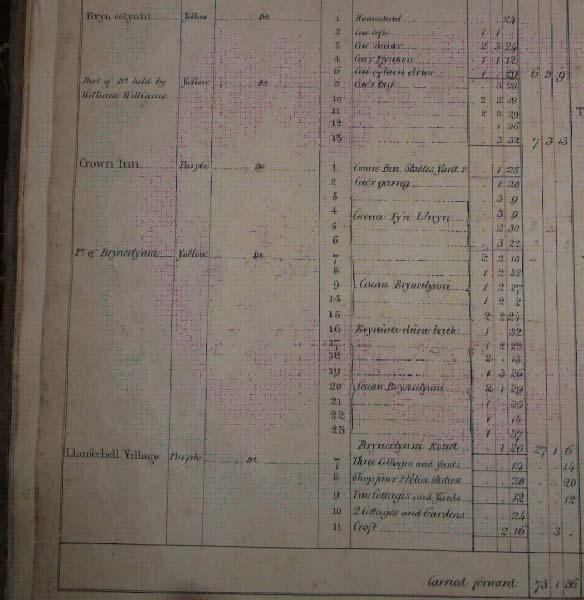 Bryn celynni Yellow Do. 1 Homestead 24
2 Cae 1 1
3 Cae mawr 2 3 24
4 1 1 12
5 Cae o flaen drws 1 6 2 9
Part of Do. held by Yellow Do. 8 Cae'r 3 28
William Williams 10 2 2 18
11 2 3 29
12 1 26
13 3 32 7 3 13
Crown Inn Purple Do. 1 Crown Inn, Stables, Yard & 1 25
2 Cae'r garreg 1 20
3 3 9
4 Caeau Ty'n Llwyn 3 9
5 2 30
6 3 22
Pt. of Bryncelynni Yellow Do. 7 2 2 10
8 1 2 32
9 Caeau Bryncelynni 1 2 27
14 1 2 2
15 2 2 24
16 Bryniau back 1 32
17 1 2 28
18 2 13
19 1 3 26
20 Caeau Bryncelynni 2 1 29
21 1 35
22 1 15
23 1 37
Bryncelynni Road 1 26 27 1 6
Llanfechell Village Purple Do. 7 Three Cottages and Yards 14 14
8 Shop fawr & Police Station 20 20
9 Two Cottages and Yards 12 12
10 2 Cottages and Gardens 24
11 Croft 2 16 3
Carried forward 73 1 36